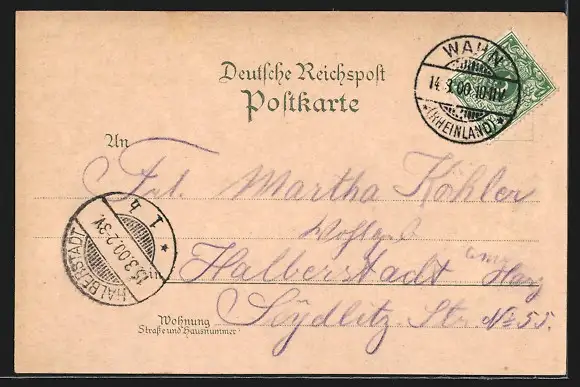 Deutsche Reichspost
Postkarte
WAHN
14.3.00.10-11V.
* (RHEINLAND) *
An
Frl. Martha Köhler
Wohlgeb.
in Halberstadt am Harz
Wohnung
Straße und Hausnummer
Seydlitz. Str. No 55.
HALBERSTADT
15.3.00.2-3V.
* 1 b *